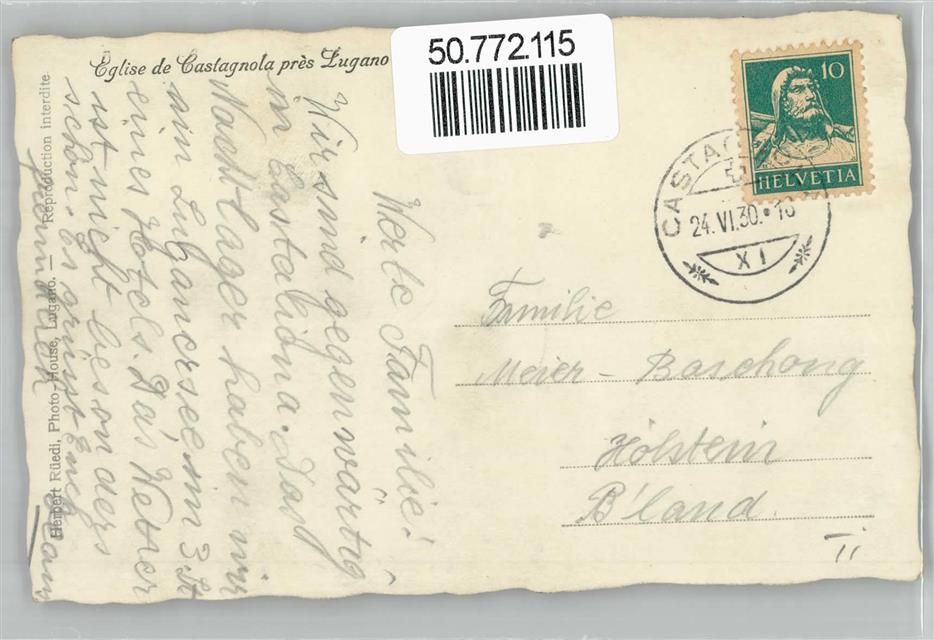 Église de Castagnola près Lugano
50.772.115
10
HELVETIA
CASTAGNOLA
24.VI.30.-18
XI
Herbert Rüedi, Photo-House, Lugano. — Reproduction interdite
Werte Familie!
Wir sind gegenwärtig
in Castaliona. Das
Nachtlager haben wir
am Luganersee im 3. St
eines Hotels. Das Wetter
ist nicht besonders
schön. Es grüsst Euch
Familie
Meier - Baschong
Hölstein
B'land.
II